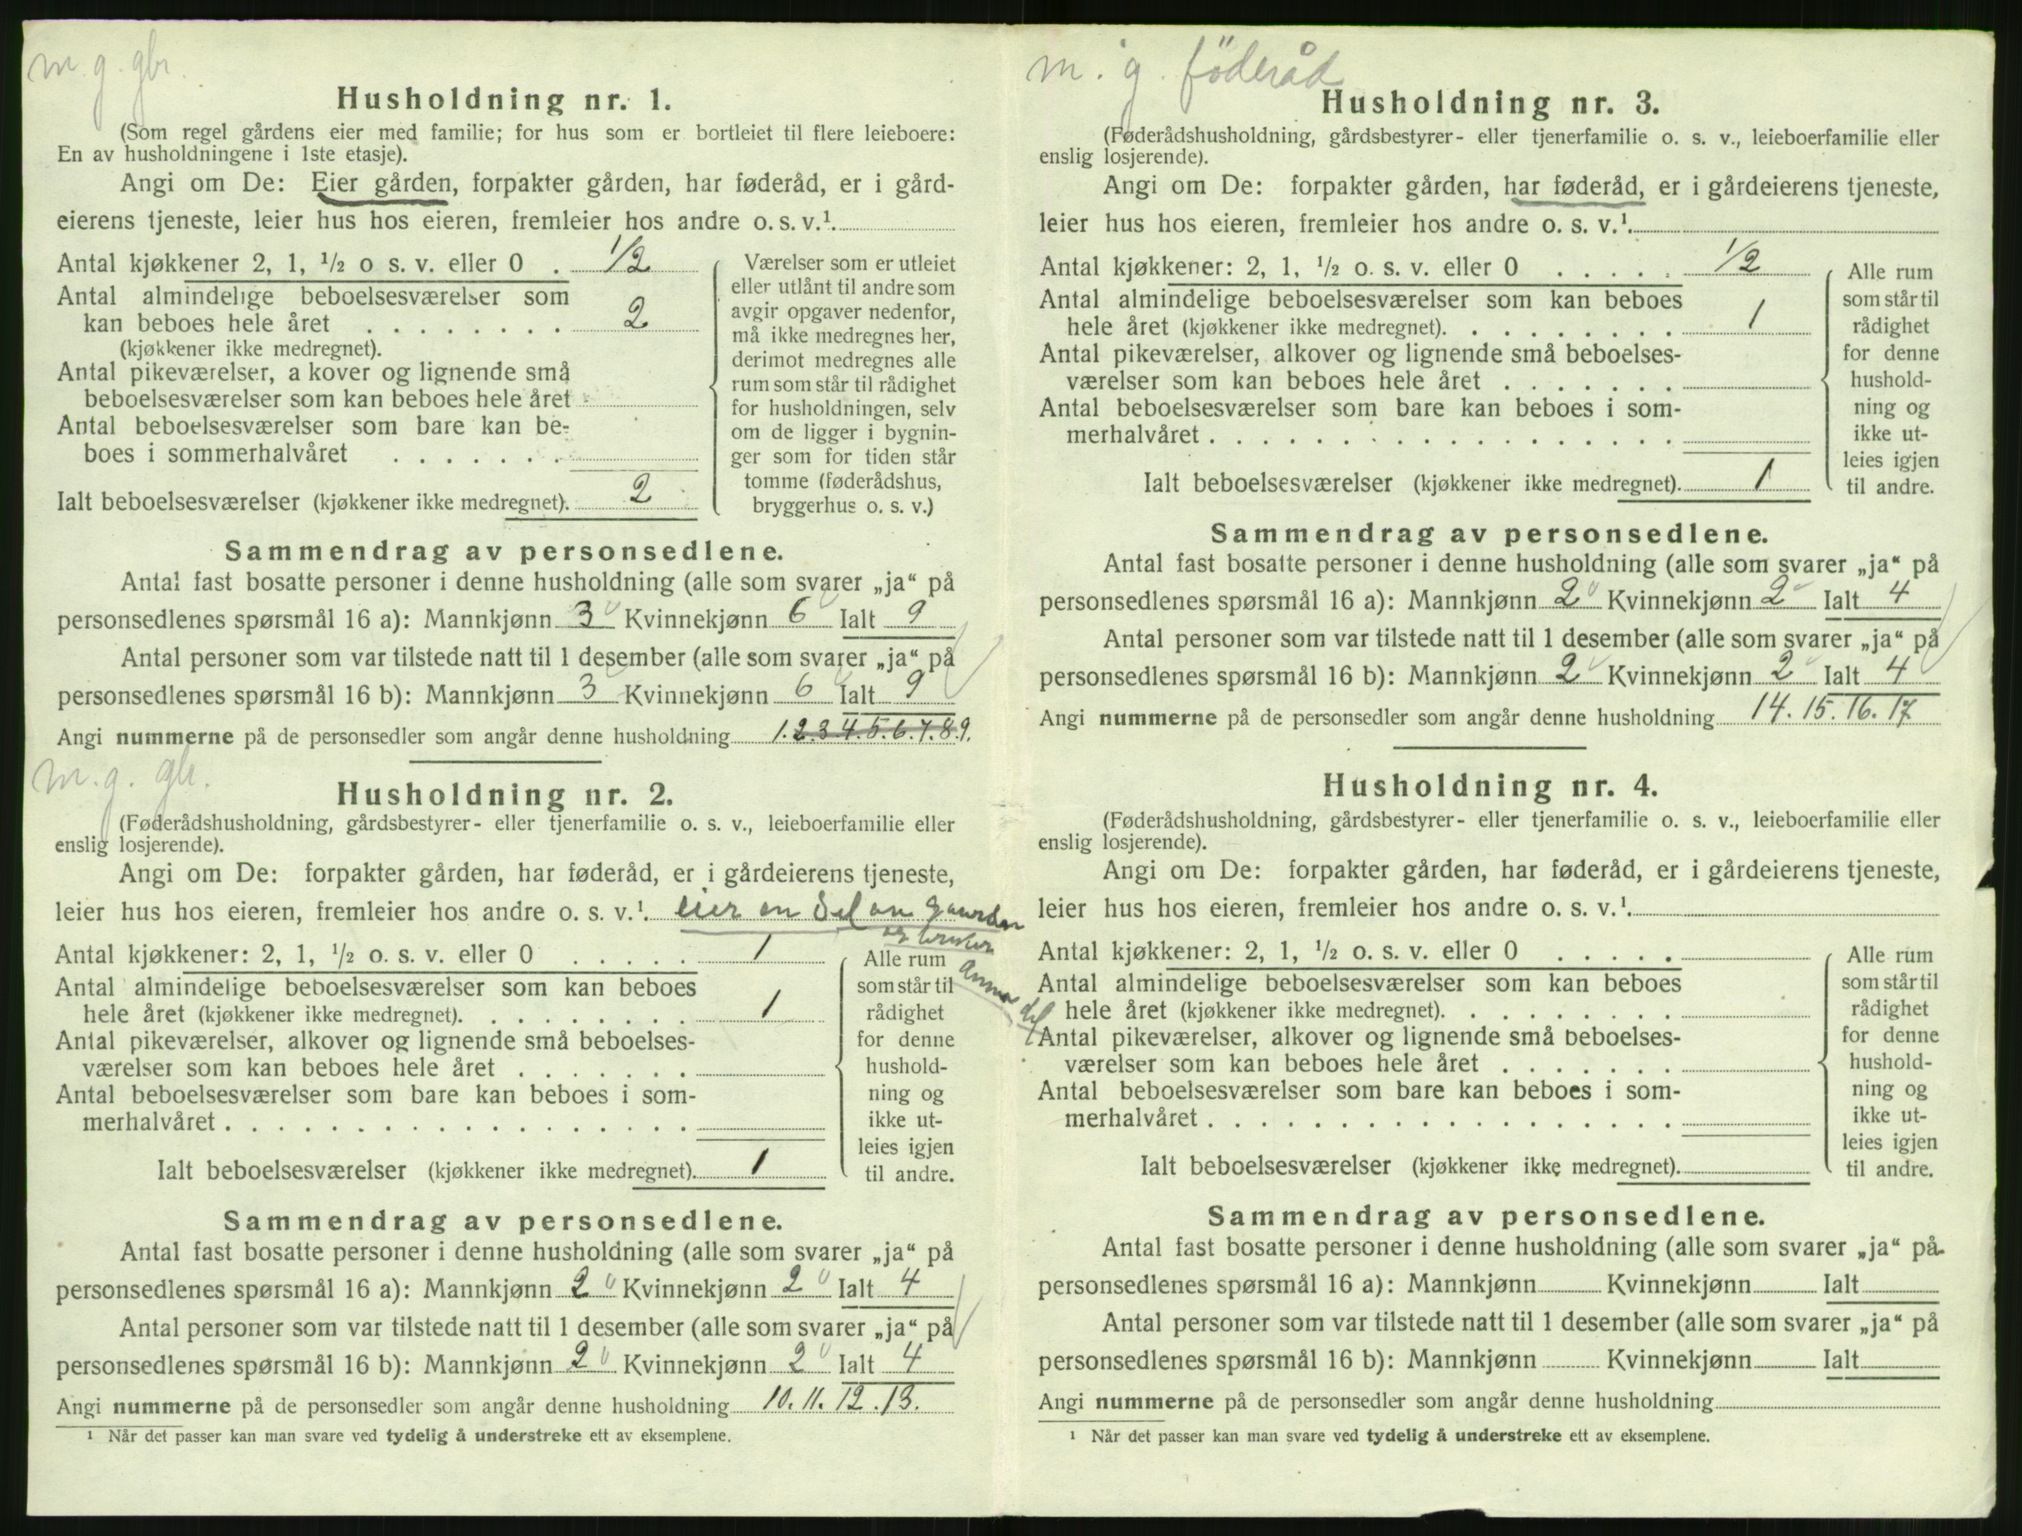 m. g. gbr.
Husholdning nr. 1.
(Som regel gårdens eier med familie; for hus som er bortleiet til flere leieboere:
En av husholdningene i 1ste etasje).
Angi om De: Eier gården, forpakter gården, har føderåd, er i gård-
eierens tjeneste, leier hus hos eieren, fremleier hos andre o. s. v.¹.
Antal kjøkkener 2, 1, ½ o s. v. eller 0 . 1/2
Antal almindelige beboelsesværelser som
kan beboes hele året . . . . . . . . 2
(kjøkkener ikke medregnet).
Antal pikeværelser, a kover og lignende små
beboelsesværelser som kan beboes hele året
Antal beboelsesværelser som bare kan be-
boes i sommerhalvåret . . . . . . .
Ialt beboelsesværelser (kjøkkener ikke medregnet). 2
Værelser som er utleiet
eller utlånt til andre som
avgir opgaver nedenfor,
må ikke medregnes her,
derimot medregnes alle
rum som står til rådighet
for husholdningen, selv
om de ligger i bygnin-
ger som for tiden står
tomme (føderådshus,
bryggerhus o. s. v.)
Sammendrag av personsedlene.
Antal fast bosatte personer i denne husholdning (alle som svarer „ja“ på
personsedlenes spørsmål 16 a): Mannkjønn 3 Kvinnekjønn 6 Ialt 9
Antal personer som var tilstede natt til 1 desember (alle som svarer „ja“ på
personsedlenes spørsmål 16 b): Mannkjønn 3 Kvinnekjønn 6 Ialt 9
Angi nummerne på de personsedler som angår denne husholdning 1.2.3.4.5.6.7.8.9.
m. g. gbr.
Husholdning nr. 2.
(Føderådshusholdning, gårdsbestyrer- eller tjenerfamilie o. s. v., leieboerfamilie eller
enslig losjerende).
Angi om De: forpakter gården, har føderåd, er i gårdeierens tjeneste,
leier hus hos eieren, fremleier hos andre o. s. v.¹. eier en del av gaarden
og bruker
del
Antal kjøkkener: 2, 1, ½ o. s. v. eller 0 . . . . . 1
Antal almindelige beboelsesværelser som kan beboes
hele året (kjøkkener ikke medregnet). . . . . . . . . 1
Antal pikeværelser, alkover og lignende små beboelses-
værelser som kan beboes hele året . . . . . . .
Antal beboelsesværelser som bare kan beboes i som-
merhalvåret . . . . . . . . . . . . . . . . . .
Ialt beboelsesværelser (kjøkkener ikke medregnet). 1
Alle rum
som står til
rådighet
for denne
hushold-
ning og
ikke ut-
leies igjen
til andre.
Sammendrag av personsedlene.
Antal fast bosatte personer i denne husholdning (alle som svarer „ja“ på
personsedlenes spørsmål 16 a): Mannkjønn 2 Kvinnekjønn 2 Ialt 4
Antal personer som var tilstede natt til 1 desember (alle som svarer „ja“ på
personsedlenes spørsmål 16 b): Mannkjønn 2 Kvinnekjønn 2 Ialt 4
Angi nummerne på de personsedler som angår denne husholdning 10. 11. 12. 13.
¹ Når det passer kan man svare ved tydelig å understreke ett av eksemplene.
m. g. föderåd
Husholdning nr. 3.
(Føderådshusholdning, gårdsbestyrer- eller tjenerfamilie o. s. v., leieboerfamilie eller
enslig losjerende).
Angi om De: forpakter gården, har føderåd, er i gårdeierens tjeneste,
leier hus hos eieren, fremleier hos andre o. s. v.¹.
Antal kjøkkener: 2, 1, ½ o. s. v. eller 0 . . . . . 1/2
Antal almindelige beboelsesværelser som kan beboes
hele året (kjøkkener ikke medregnet). . . . . . . . . 1
Antal pikeværelser, alkover og lignende små beboelses-
værelser som kan beboes hele året . . . . . . .
Antal beboelsesværelser som bare kan beboes i som-
merhalvåret . . . . . . . . . . . . . . . . . .
Ialt beboelsesværelser (kjøkkener ikke medregnet). 1
Alle rum
som står til
rådighet
for denne
hushold-
ning og
ikke ut-
leies igjen
til andre.
Sammendrag av personsedlene.
Antal fast bosatte personer i denne husholdning (alle som svarer „ja“ på
personsedlenes spørsmål 16 a): Mannkjønn 2 Kvinnekjønn 2 Ialt 4
Antal personer som var tilstede natt til 1 desember (alle som svarer „ja“ på
personsedlenes spørsmål 16 b): Mannkjønn 2 Kvinnekjønn 2 Ialt 4
Angi nummerne på de personsedler som angår denne husholdning 14. 15. 16. 17
Husholdning nr. 4.
(Føderådshusholdning, gårdsbestyrer- eller tjenerfamilie o. s. v., leieboerfamilie eller
enslig losjerende).
Angi om De: forpakter gården, har føderåd, er i gårdeierens tjeneste,
leier hus hos eieren, fremleier hos andre o. s. v.¹.
Antal kjøkkener: 2, 1, ½ o. s. v. eller 0 . . . . .
Antal almindelige beboelsesværelser som kan beboes
hele året (kjøkkener ikke medregnet). . . . . . . . .
Antal pikeværelser, alkover og lignende små beboelses-
værelser som kan beboes hele året . . . . . . .
Antal beboelsesværelser som bare kan beboes i som-
merhalvåret . . . . . . . . . . . . . . . . . .
Ialt beboelsesværelser (kjøkkener ikke medregnet).
Alle rum
som står til
rådighet
for denne
hushold-
ning og
ikke ut-
leies igjen
til andre.
Sammendrag av personsedlene.
Antal fast bosatte personer i denne husholdning (alle som svarer „ja“ på
personsedlenes spørsmål 16 a): Mannkjønn Kvinnekjønn Ialt
Antal personer som var tilstede natt til 1 desember (alle som svarer „ja“ på
personsedlenes spørsmål 16 b): Mannkjønn Kvinnekjønn Ialt
Angi nummerne på de personsedler som angår denne husholdning
¹ Når det passer kan man svare ved tydelig å understreke ett av eksemplene.